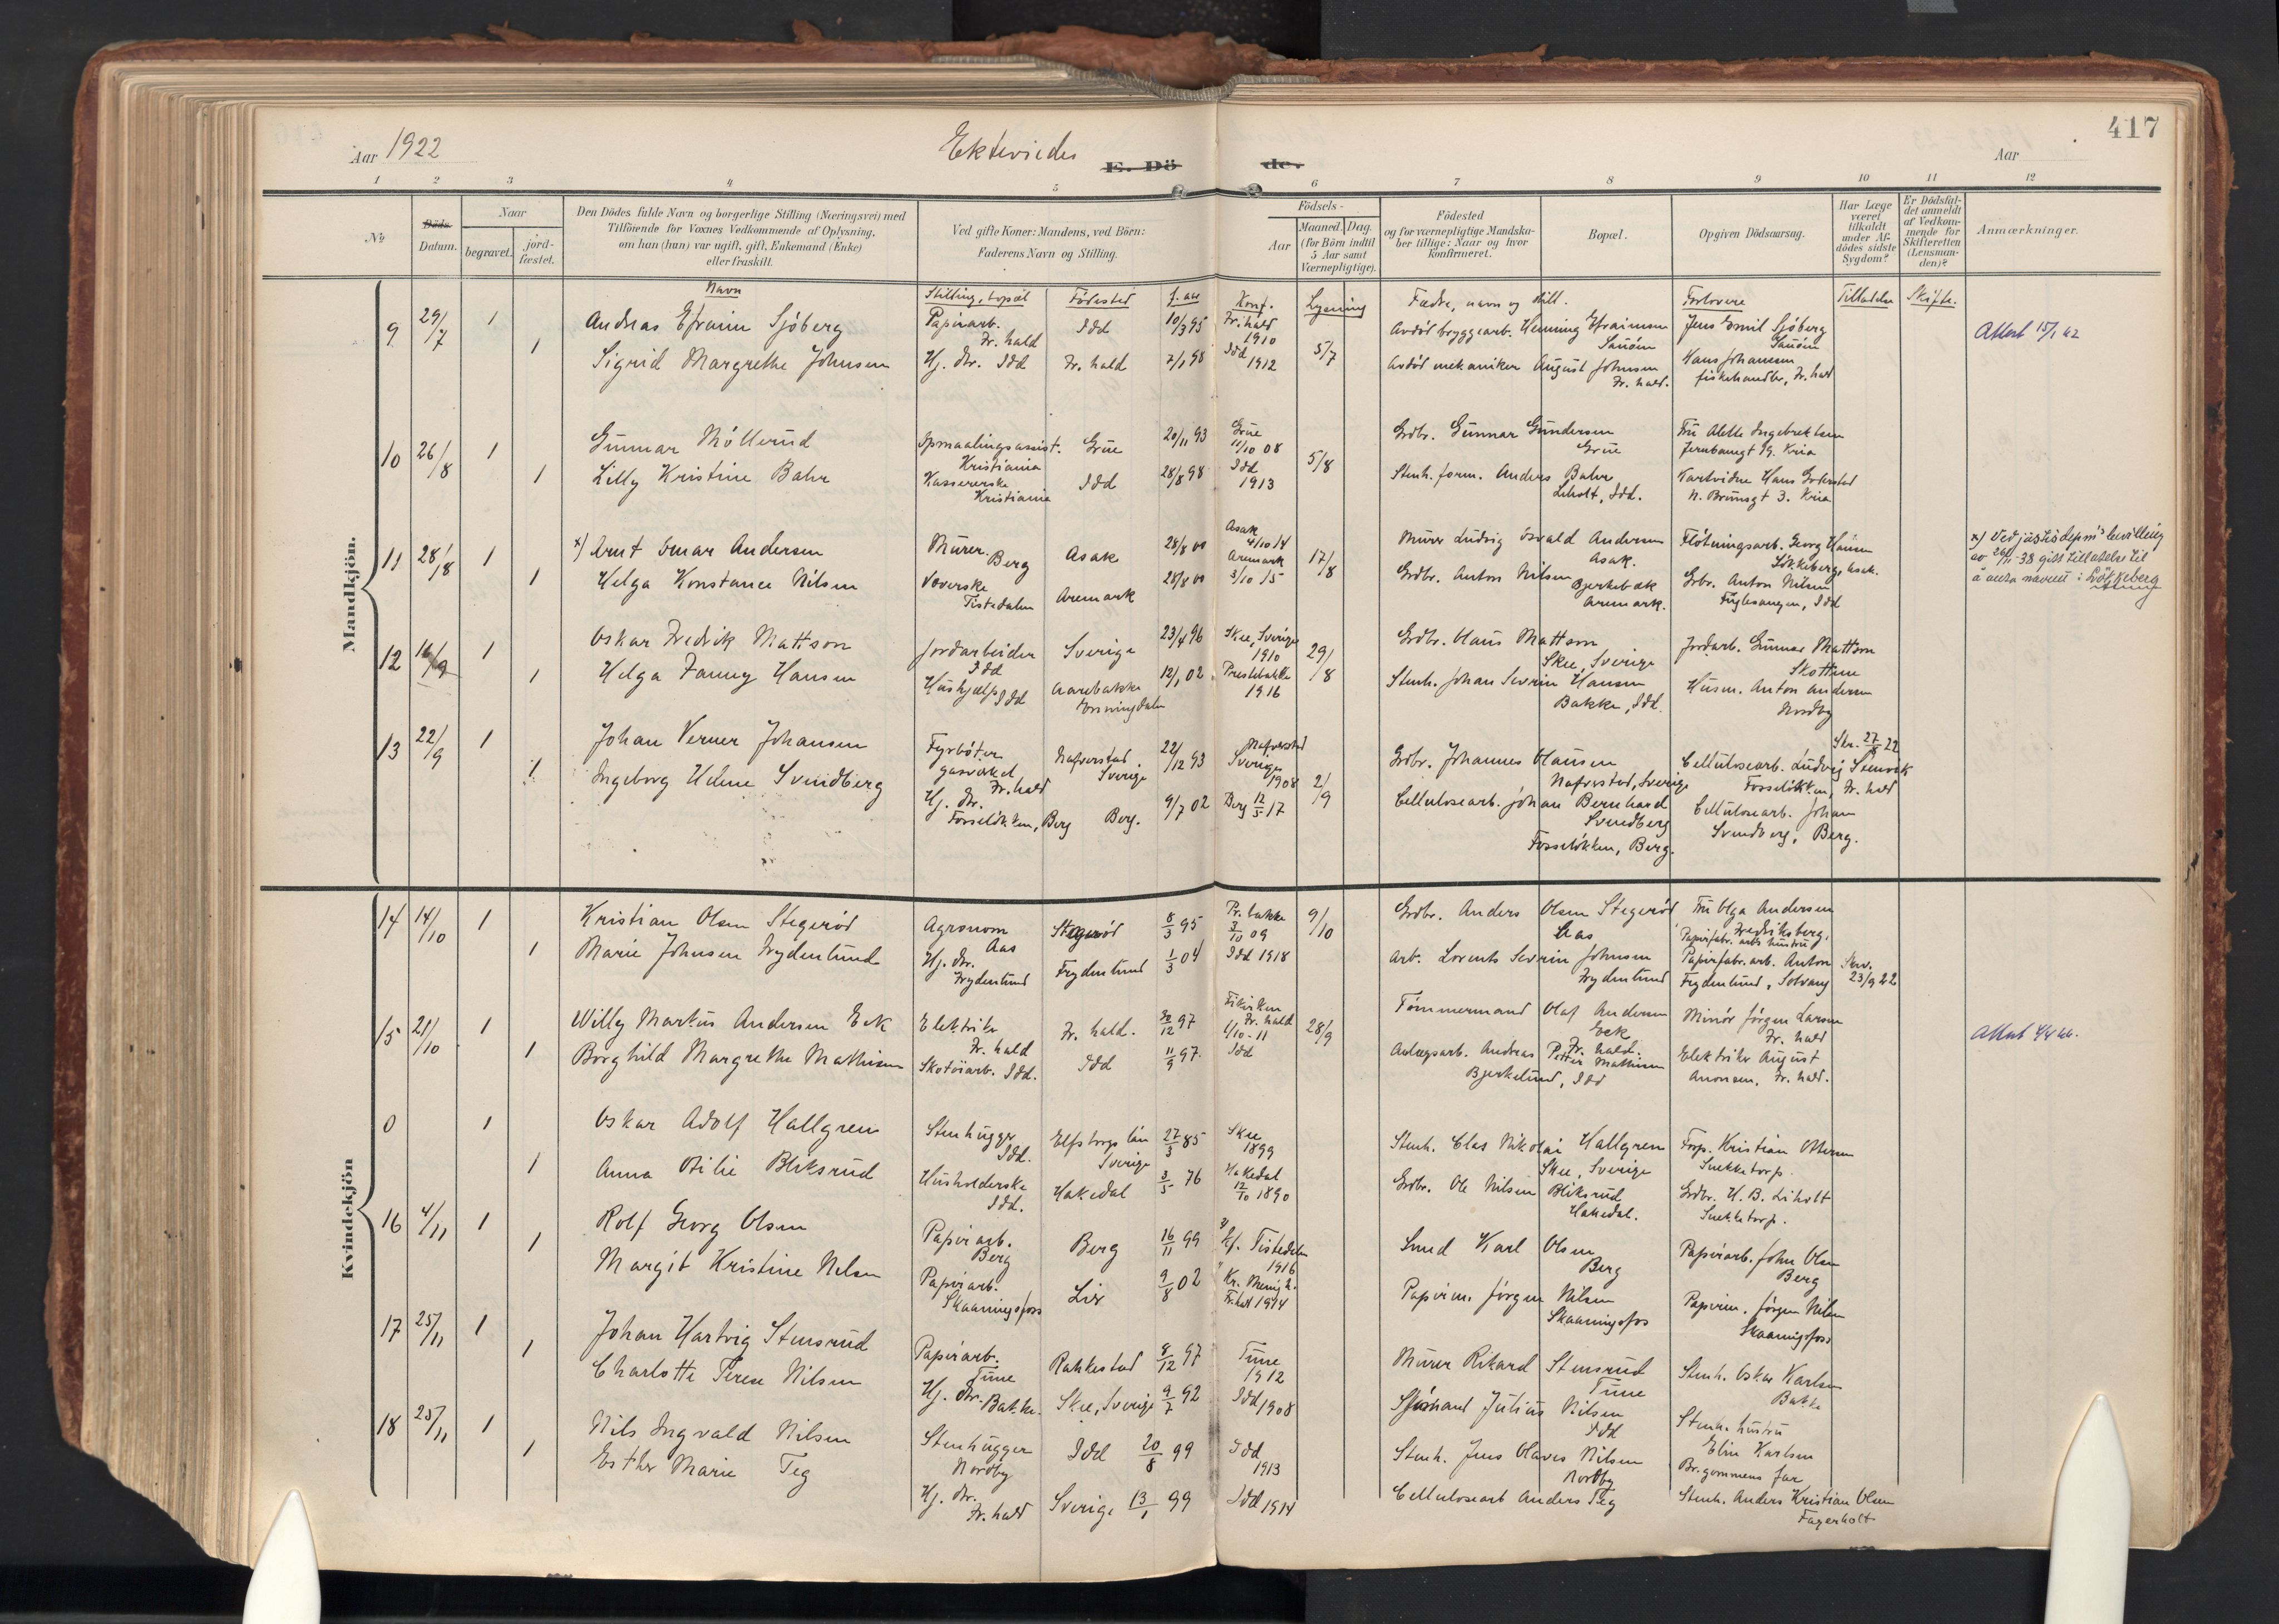 417
Aar 1922
Ekteviede
E. Dö
de.
Aar
1 2 3 4 5 6 7 8 9 10 11 12
No
Döds-
Datum.
Naar
begravet.
jord-
fæstet.
Den Dödes fulde Navn og borgerlige Stilling (Næringsvei) med
Tilföiende for Voxnes Vedkommende af Oplysning,
om han (hun) var ugift, gift, Enkemand (Enke)
eller fraskilt.
Ved gifte Koner: Mandens, ved Börn:
Faderens Navn og Stilling.
Födsels-
Aar
Maaned.
Dag.
(for Börn indtil
5 Aar samt
Værnepligtige).
Födested
og for værnepligtige Mandska-
ber tillige: Naar og hvor
konfirmeret.
Bopæl.
Opgiven Dödsaarsag.
Har Læge
været
tilkaldt
under Af-
dödes sidste
Sygdom?
Er Dödsfal-
det anmeldt
af Vedkom-
mende for
Skifteretten
(Lensman-
den)?
Anmærkninger.
Mandkjön.
Kvindekjön
Navn
Stilling, bopæl
Fødested
f. aar
Konf.
Lysning
Fædre, navn og still.
Forlovere
Tilladelse
Skifte.
9 29/7 1
Andreas Efraim Sjöberg
Papirarb.
Fr.hald
Idd
10/3 95
Fr.hald
1910
5/7
Avdöd bryggearb. Henning Efraimsen
Sauöen
Jens Emil Sjöberg
Sauöen
Attest 15/1 42
1
Sigrid Margrethe Johnsen
Hj. dtr. Idd
Fr. hald
7/1 98
Idd
1912
Avdöd mekaniker August Johnsen
Fr. hald.
Hans Johansen
fiskehandler, Fr. hald
10 26/8 1
Gunnar Möllerud
Opmaalingsassist.
Kristiania
Grue
20/11 93
Grue
11/10 08
5/8
Grdbr. Gunnar Gundersen
Grue
Fru Alette Ingebrektsen
Jernbanegt 19. Kria
1
Lilly Kristine Bahr
Kassererske
Kristiania
Idd
28/8 98
Idd
1913
Stenh. form. Anders Bahr
Liholt, Idd.
N. Brunsgt 3. Kria
11 28/8 1
x) Arnt Ingvar Andersen
Murer.
Berg
Asak
28/8 00
Asak
4/10 14
17/8
Murer Ludvig Osvald Andersen
Asak.
Flötningsarb. Georg Hansen
Lökkeberg, Asak.
x) Ved justisdepm's bevilling
av 26/11-38 gitt tillatelse til
å anta navnet: Lökkeberg
1
Helga Konstance Nilsen
Væverske
Tistedalen
Aremark
28/8 00
Aremark
3/10 15
Grdbr. Anton Nilsen
Bjerkebæk
Aremark.
Grbr. Anton Nilsen
Fuglesangen, Idd
12 1
Oskar Fredrik Mattson
Jordarbeider
Idd
Sverige
23/4 96
Skee, Sverige
1910
29/8
Grdbr. Claus Mattson
Skee, Sverige
Jordarb. Gunnar Mattson
Skottene
1
Helga Fanny Hansen
Hushjælp Idd
Aarebakke
Enningdalen
12/1 02
Prestebakke
1916
Stenh. Johan Severin Hansen
Bakke, Idd.
Husm. Anton Andersen
Nordby
13 22/9 1
Johan Verner Johansen
Fyrböter
gasverket
Fr. hald
Nafverstad
Sverige
22/12 93
Nafverstad
Sverige
1908
2/9
Grdbr. Johannes Hansen
Nafverstad, Sverige
Cellulosearb. Ludvig Stenvik
Fosselökken, Fr. hald
Skr. 27/8 22
1
Ingeborg Helene Svendberg
Hj. dtr.
Fosselökken, Berg
Berg.
9/7 02
Berg 12/5 17
Cellulosearb. Johan Bernhard
Svendberg
Fosselökken, Berg.
Cellulosearb. Johan
Svendberg, Berg.
14 14/10 1
Kristian Olsen Stegeröd
Agronom
Aas
Stegeröd
8/3 95
Pr. bakke
3/10 09
9/10
Grdbr. Anders Olsen Stegeröd
Aas
Fru Olga Andersen
Fredriksberg,
Papirfabr. arb. hustru
1
Marie Johnsen Frydenlund
Hj. dtr.
Frydenlund
Frydenlund
1/3 04
Idd 1918
Arb. Lorents Severin Johnsen
Frydenlund
Papirfabr. arb. Anton
Frydenlund, Solvang
Skr.
23/9 22
15 21/10 1
Willy Markus Andersen Eek
Elektriker
Fr. hald
Fr. hald.
30/12 97
Fr. hald
1/10-11
28/9
Tömmermand Olaf Andersen
Eek
Fr. hald.
Minör Jörgen Larsen
Fr. hald
Attest
1
Borghild Margrethe Mathisen
Skotöiarb. Idd.
Idd
11/9 97.
Idd
Anlægsarb. Andreas Petter Mathisen
Bjerkelund, Idd
Elektriker August
Aronsen, Fr. hald.
0 1
Oskar Adolf Hallgren
Stenhugger
Idd.
Elfsborgs län
Sverige
27/3 85
Skee
1899
Stenh. Clas Nikolai Hallgren
Skee, Sverige
Forp. Kristian Ottersen
Snekketorp.
1
Anna Otilie Bliksrud
Husholderske
Idd.
Hakedal
3/5 76
Hakedal
12/10 1890
Grdbr. Ole Nilsen Bliksrud
Hakedal.
Grdbr. H. B. Liholt
Snekketorp.
16 4/11 1
Rolf Georg Olsen
Papirarb.
Berg
Berg
16/11 99
Tistedalen
1916
Smed Karl Olsen
Berg
Papirarb. John Olsen
Berg
1
Margit Kristine Nilsen
Papirarb.
Skaaningsfoss
Lier
9/8 02
Kr. Menigh.
Fr.hald 1914
Papirm. Jörgen Nilsen
Skaaningsfos
Papirm. Jörgen Nilsen
Skaaningsfoss
17 25/11 1
Johan Hartvig Stensrud
Papirarb.
Tune
Rakkestad
8/12 97
Tune
1912
Murer Rikard Stensrud
Tune
Stenh. Oskar Karlsen
Bakke
1
Charlotte Terese Nilsen
Hj. dtr. Bakke.
Skee, Sverige
9/7 92
Idd 1908
Sjömand Julius Nilsen
Idd
Stenh. hustru
Elin Karlsen
18 25/11 1
Nils Ingvald Nilsen
Stenhugger
Nordby
Idd
20/8 99
Idd
1913
Stenh. Jens Olaves Nilsen
Nordby
Br.gommens far
1
Esther Marie Teg
Hj. dtr.
Fr. hald
Sverige
13/1 99
Idd 1914
Cellulosearb Anders Teg
Stenh. Anders Kristian Olsen
Fagerholt